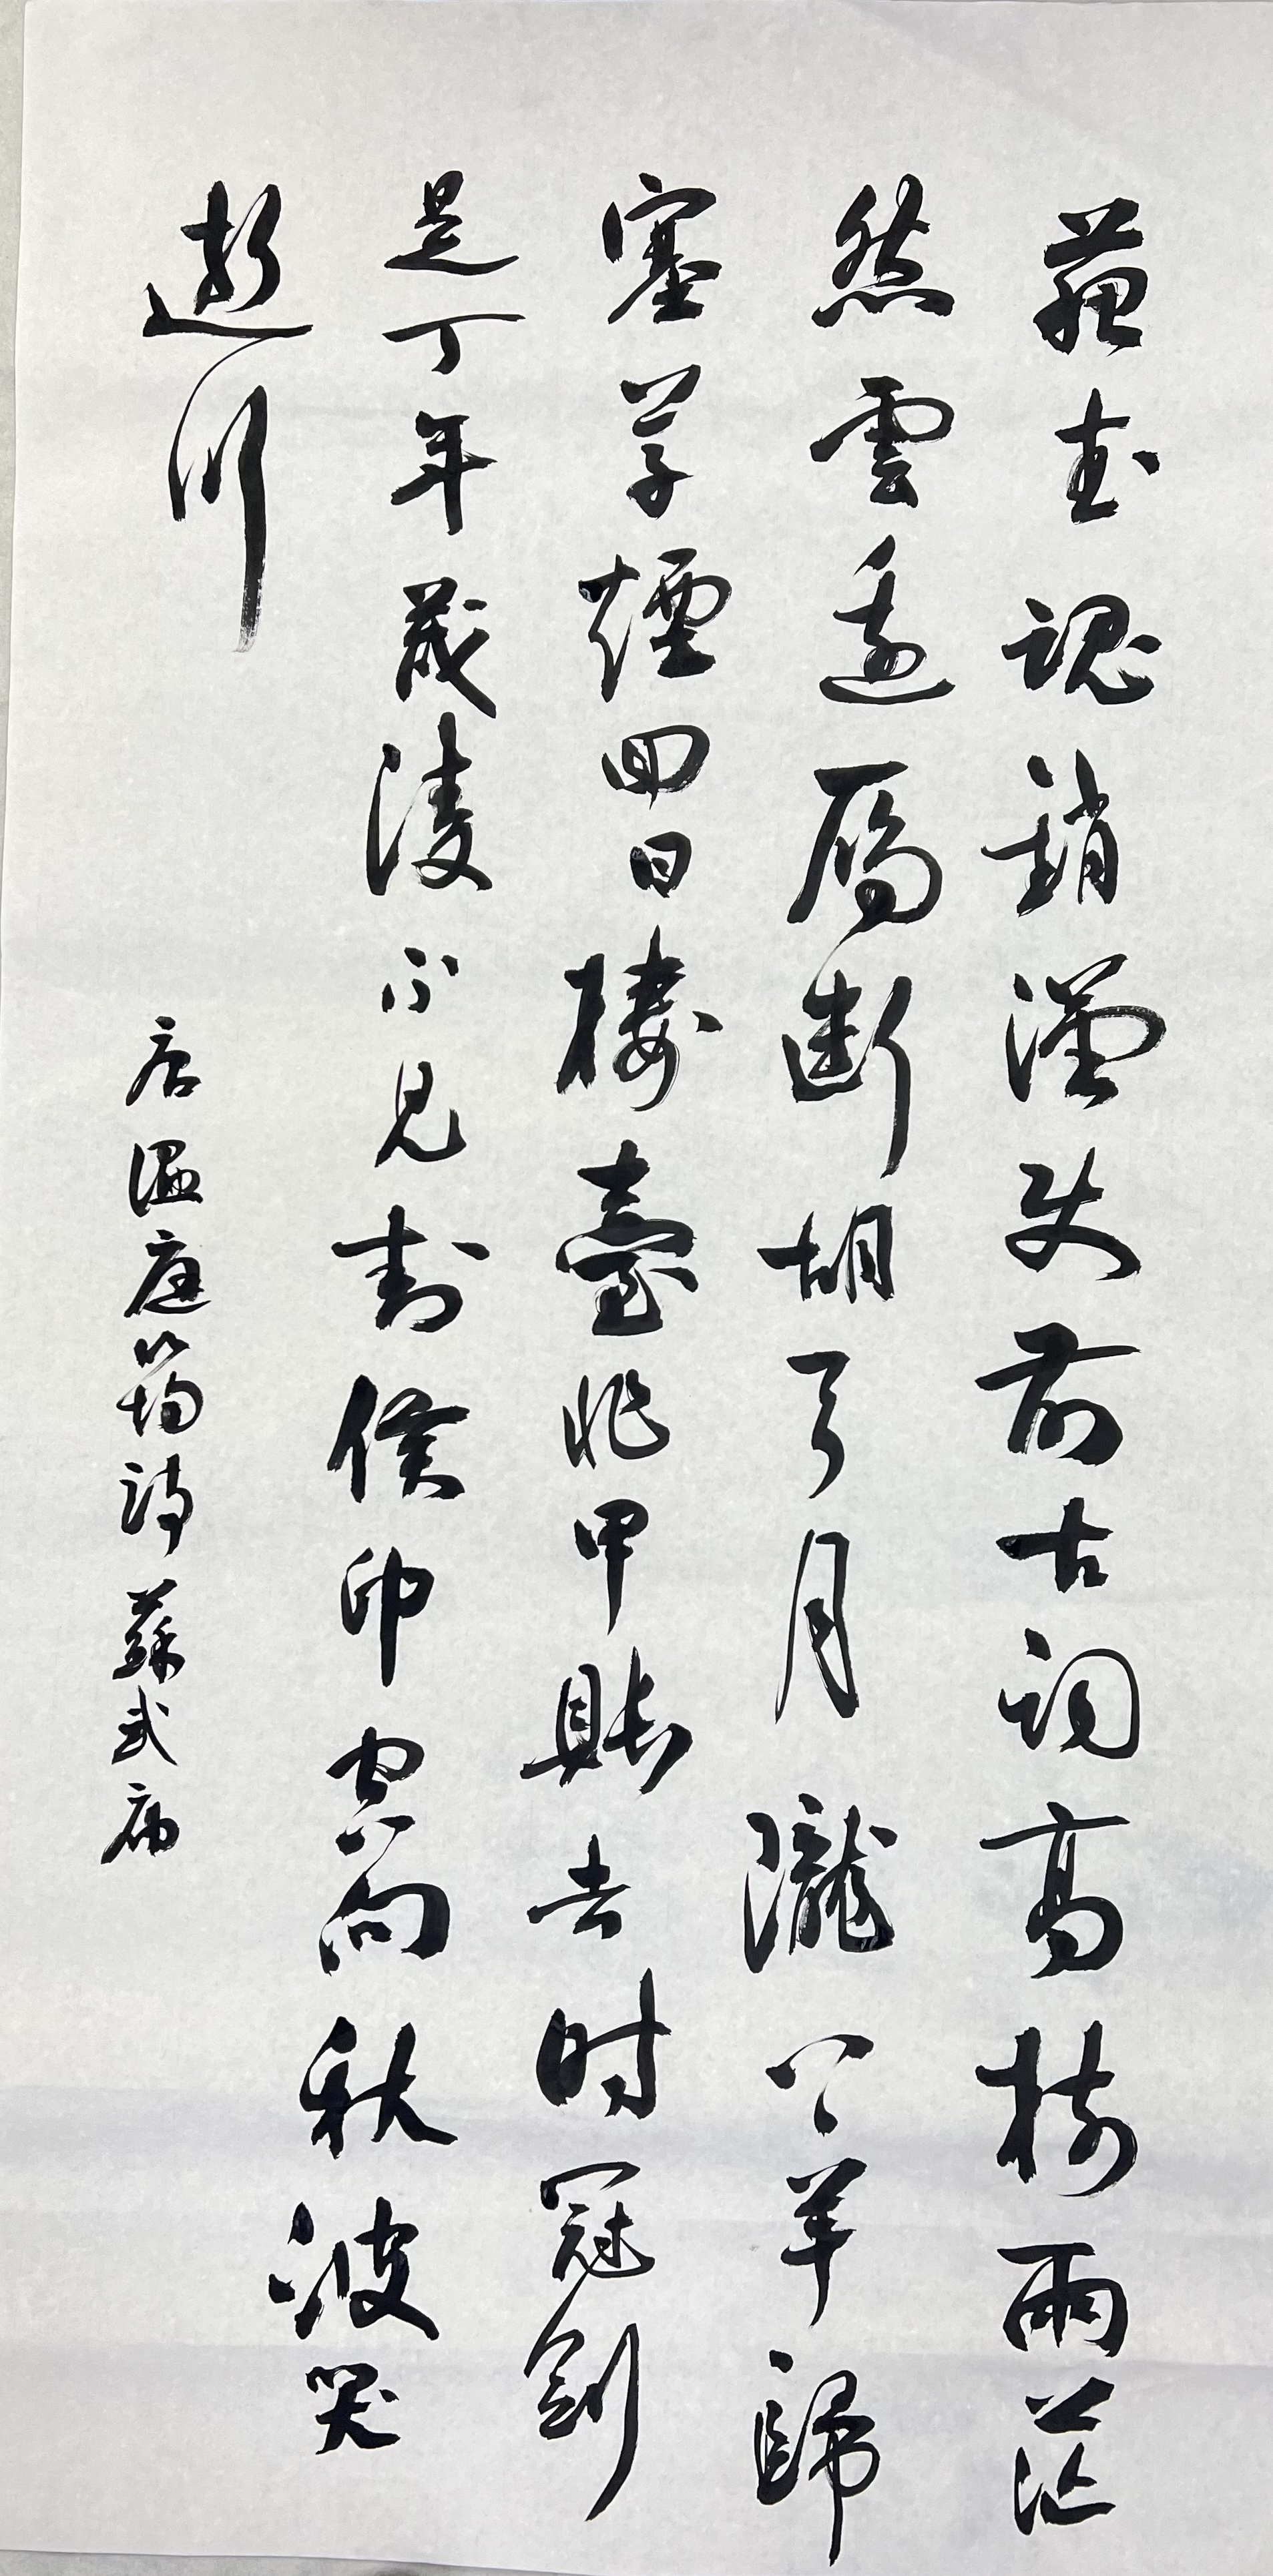 蘇武魂銷漢使前古祠高樹兩茫
然雲邊鴈斷胡天月隴上羊歸
塞草煙回日樓臺非甲賬去时冠劍
是丁年茂陵不見封侯印空向秋波哭
逝川
唐溫庭筠詩蘇武廟